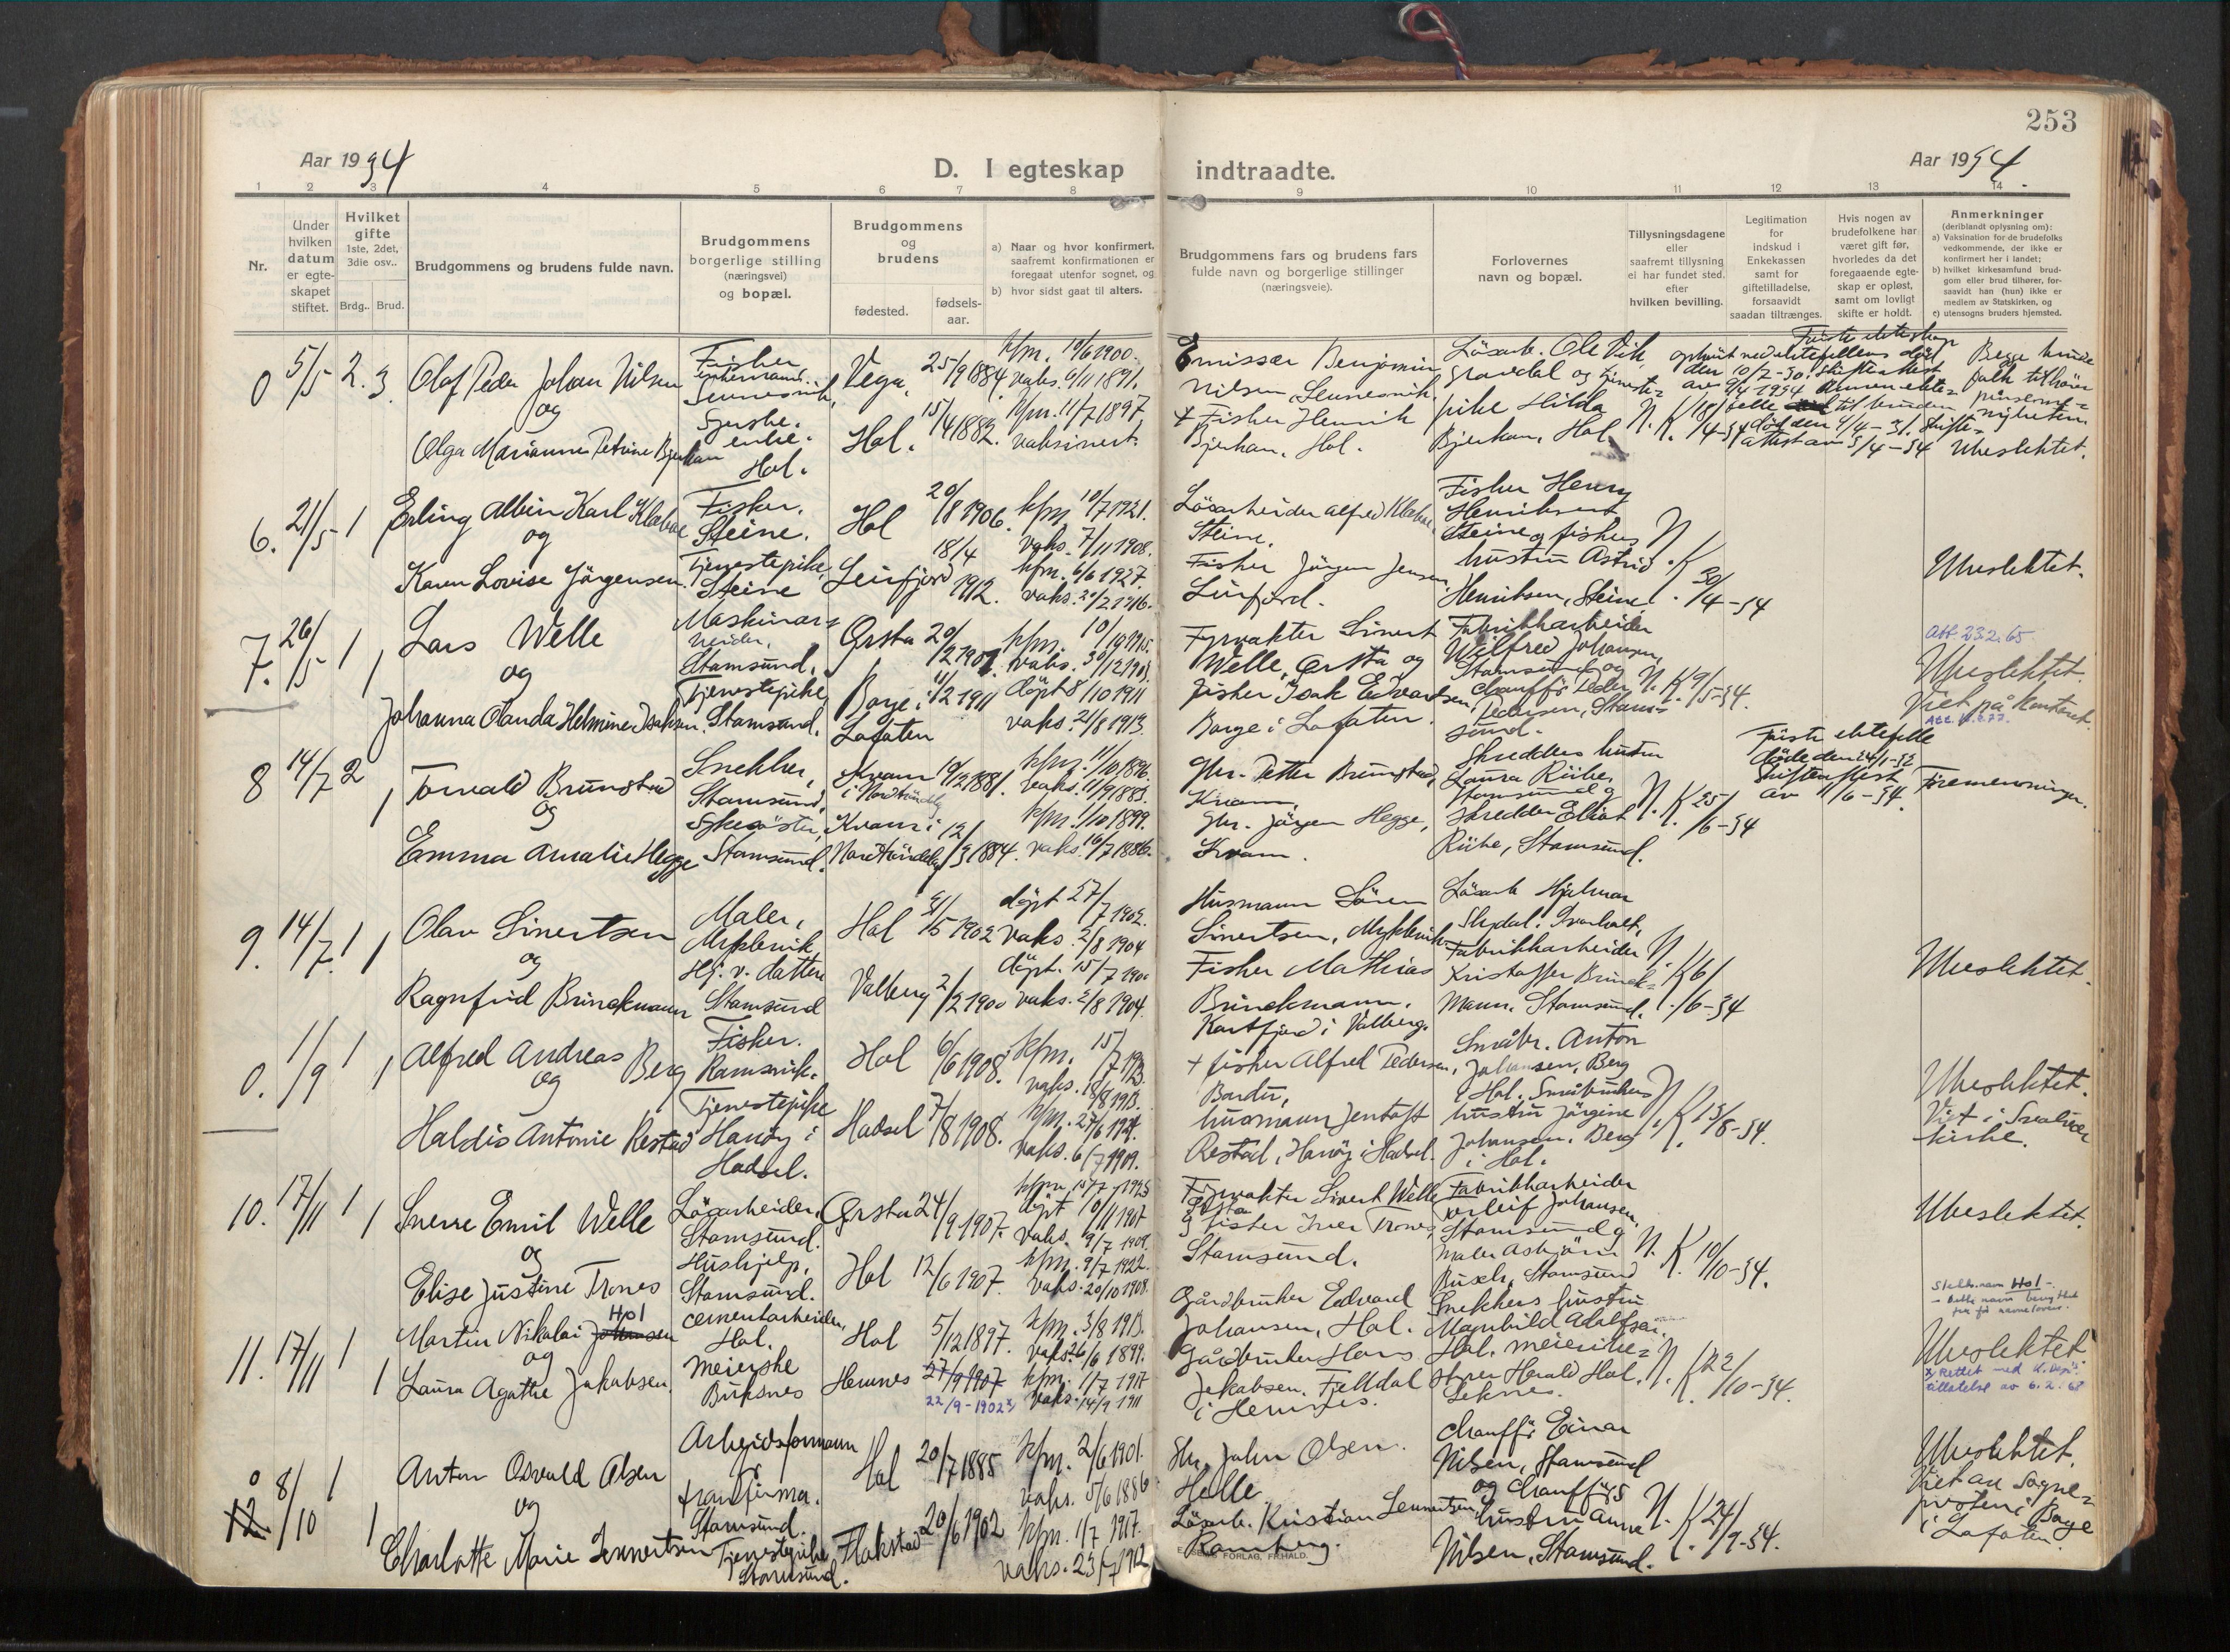 253
Aar 1934
D. I egteskap indtraadte.
Aar 1934.
1 2 3 4 5 6 7 8 9 10 11 12 13 14
Nr.
Under hvilken datum er egte-skapet stiftet.
Hvilket gifte 1ste, 2det, 3die osv..
Brdg.. Brud.
Brudgommens og brudens fulde navn.
Brudgommens borgerlige stilling (næringsvei) og bopæl.
Brudgommens og brudens
fødested.
fødsels-aar.
a) Naar og hvor konfirmert, saafremt konfirmationen er foregaat utenfor sognet, og
b) hvor sidst gaat til alters.
Brudgommens fars og brudens fars fulde navn og borgerlige stillinger (næringsveie).
Forlovernes navn og bopæl.
Tillysningsdagene eller saafremt tillysning ei har fundet sted. efter hvilken bevilling.
Legitimation for indskud i Enkekassen samt for giftetilladelse, forsaavidt saadan tiltrænges.
Hvis nogen av brudefolkene har været gift før, hvorledes da det foregaaende egte-skap er opløst, samt om lovligt skifte er holdt.
Anmerkninger (deriblandt oplysning om):
a) Vaksination for de brudefolks vedkommende, der ikke er konfirmert her i landet;
b) hvilket kirkesamfund brud-gom eller brud tilhører, for-saavidt han (hun) ikke er medlem av Statskirken, og
c) utensogns bruders hjemsted.
0 5/5 2. 3. Olaf Peder Johan Nilsen
og
Olga Marianne Petrine Bjerkan
Fisker
Sennesvik,
enke.
Hol.
Vega, 25/9 1884. kfm. 10/6 1900.
vaks. 6/11 1891.
Hol. 15/4 1882. kfm. 11/7 1897.
vaksinert.
Emissær Benjamin
Nilsen, Sennesvik.
+ Fisker Henrik
Bjerkan, Hol.
Løsarb. Ole Vik,
Gravdal og tjeneste=
pike Hilda
Bjerkan, Hol.
N. K. 18/4-34
Begge
Ubeslektet.
6. 21/5 1 Erling Albin Karl Klæboe
og
Karen Lovise Jørgensen.
Fisker,
Steine.
Tjenestepike,
Steine
Hol 20/8 1906. kfm. 10/7 1921.
vaks. 7/11 1908.
Leirfjord 18/4 1912. kfm. 6/6 1927.
vaks. 20/2 1916.
Løsarbeider Alfred Klæboe,
Steine.
Fisker Jørgen Jensen,
Leirfjord.
Fisker Henry
Henriksen
Steine og fiskers
hustru Astrid
Henriksen, Steine.
N. K. 30/4-34
Ubeslektet.
7. 26/5 1 1 Lars Welle
og
Johanna Olanda Helmine Isaksen.
Maskinar=
beider,
Stamsund.
Tjenestepike
Stamsund.
Ørsta 20/2 1901. kfm. 10/10 1915.
vaks. 30/12 1903.
Borge i Lofoten 11/2 1911 døpt 8/10 1911
vaks. 21/8 1913.
Fyrvakter Sivert
Welle, Ørsta og
fisker Isak Edvardsen,
Borge i Lofoten.
Fabrikkarbeider
Wilfred Johansen,
Stamsund og
chauffør Peder
Pedersen, Stam=
sund.
N. K. 9/5-34.
Att. 23.2.65
Ubeslektet.
Viet på kontoret.
8 14/7 2 1 Torvald Brunstad
og
Emma Amalie Hegge
Snekker,
Stamsund,
Sykesøster,
Stamsund.
Kvam i Nordtrøndelag 10/12 1881. kfm. 11/10 1896.
vaks. 11/9 1883.
Kvam i Nordtrøndelag 12/3 1884. kfm. 1/10 1899.
vaks. 16/7 1886.
Gbr. Petter Brunstad,
Kvam,
Gbr. Jørgen Hegge,
Kvam.
Skredders hustru
Laura Riibe,
Stamsund og
Skredder Eliot
Riibe, Stamsund.
N. K. 25/6-34
Første ektefelle
døde den 24/1-32
Skifteattest
av 11/6-34.
Firemenninger.
9. 14/7. 1 1 Olav Sivertsen
og
Ragnfrid Brinckmann
Maler,
Myklevik
Hj. v. datter
Stamsund
Hol 31/5 1902 døpt 27/7 1902.
vaks. 2/8 1904
Valberg 2/2 1900 døpt. 15/7 1900
vaks. 2/8 1904.
Husmann Søren
Sivertsen, Myklevik
Fisker Mathias
Brinckmann,
Kartfjord i Valberg.
Løsarb Hjalmar
Fabrikkarbeider
Kristoffer Brinck=
mann, Stamsund.
N. K. 6/6-34
Ubeslektet.
0. 1/9 1 1 Alfred Andreas Berg
og
Haldis Antonie Restad
Fisker.
Ramsvik.
Tjenestepike
Hanøy i
Hadsel.
Hol 6/6 1908. kfm. 15/7 1923.
vaks. 18/8 1913.
Hadsel 7/8 1908. kfm. 27/6 1924.
vaks. 6/7 1909.
+ fisker Alfred Pedersen,
Bardu,
husmann Jentoft
Restad, Hanøy i Hadsel.
Småbr. Anton
Johansen, Berg
i Hol. Småbrukers
hustru Jørgine
Johansen, Berg
i Hol.
N. K. 13/8-34.
Ubeslektet.
Viet i Svolvær
kirke.
10. 17/11 1 1 Sverre Emil Welle
og
Elise Justine Trones
Løsarbeider,
Stamsund.
Hushjelp,
Stamsund.
Ørsta 24/9 1907. kfm. 15/7 1923
døpt 10/11 1907
vaks. 9/7 1909.
Hol 12/6 1907. kfm. 9/7 1922.
vaks. 20/10 1908.
Fyrvakter Sivert Welle
Ørsta
og fisker Iver Trones,
Stamsund.
Fabrikkarbeider
Torleif Johansen,
Stamsund og
maler Asbjørn
Busch, Stamsund
N. K. 10/10-34.
Ubeslektet.
11. 17/11 1 1 Martin Nikolai Johansen Hol
og
Laura Agathe Jakobsen.
cementarbeider,
Hol.
Meierske
Buksnes
Hol 5/12 1897. kfm. 3/8 1913.
vaks. 26/6 1899.
Hemnes 27/9 1907 kfm. 1/7 1917
22/9-1902 x) vaks. 14/9 1911
Gårdbruker Edvard
Johansen, Hol.
Gårdbruker Hans
Jakobsen, Fjelldal
i Hemnes.
Snekkers hustru
Magnhild Adolfsen,
Hol, meieribe=
styrer Harald Hol,
Leknes.
N. K. 22/10-34.
Slektsnavn Hol -
- Dette navn benyttet
før ny navnelov.
Ubeslektet.
x) Rettet med K. Dep's
tillatelse av 6.2.68
0 12. 8/10 1 1 Anton Osvald Olsen
og
Charlotte Marie Lennertsen
Arbeidsformann
for
tranfirma.
Stamsund.
Tjenestepike
Stamsund.
Hol 20/7 1885 kfm. 2/6 1901.
vaks. 5/6 1886
Flakstad 20/6 1902 kfm. 1/7 1917.
vaks. 23/7 1912
Gbr. John Olsen.
Helle
Løsarb. Kristian Lennertsen,
Ramberg.
E. SEMS FORLAG, FR.HALD.
Chauffør Einar
Nilsen, Stamsund
og chaufførs
hustru Anna
Nilsen, Stamsund.
N. K. 24/9-34.
Ubeslektet.
Viet av Sogne=
presten i Borge
i Lofoten.